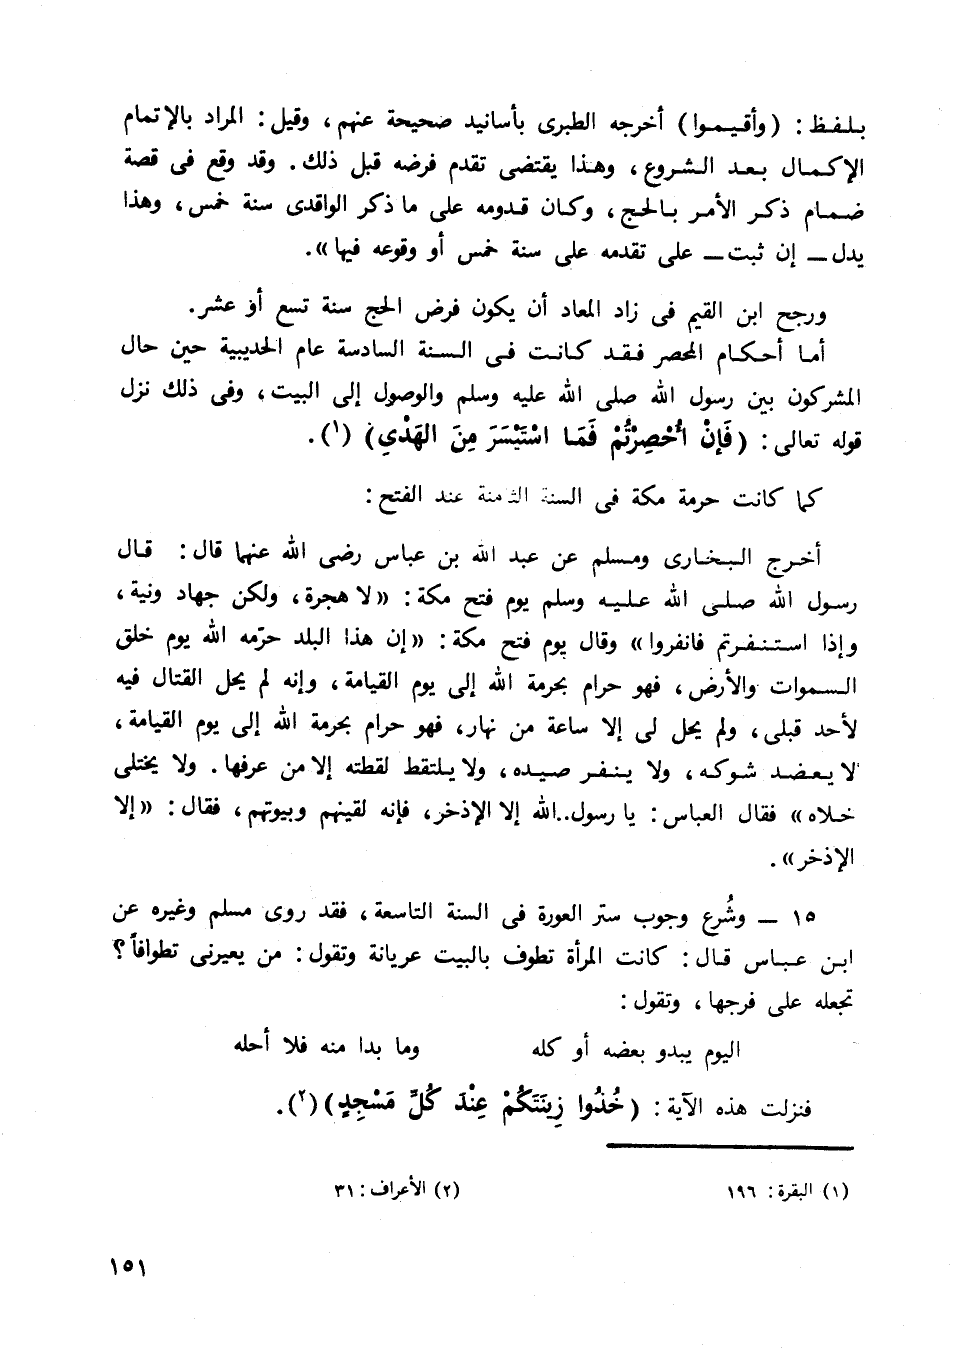 بلفظ: (وأقيموا) أخرجه الطبرى بأسانيد صحيحة عنهم، وقيل: المراد بالإتمام
الإكمال بعد الشروع، وهذا يقتضى تقدم فرضه قبل ذلك. وقد وقع فى قصة
ضمام ذكر الأمر بالحج، وكان قدومه على ما ذكر الواقدى سنة خمس، وهذا
يدل ــ إن ثبت ــ على تقدمه على سنة خمس أو وقوعه فيها».
ورجح ابن القيم فى زاد المعاد أن يكون فرض الحج سنة تسع أو عشر.
أما أحكام المحصر فقد كانت فى السنة السادسة عام الحديبية حين حال
المشركون بين رسول الله صلى الله عليه وسلم والوصول إلى البيت، وفى ذلك نزل
قوله تعالى: (فَإِنْ أُحْصِرْتُمْ فَمَا اسْتَيْسَرَ مِنَ الهَدْيِ) (١).
كما كانت حرمة مكة فى السنة الثامنة عند الفتح:
أخرج البخارى ومسلم عن عبد الله بن عباس رضى الله عنهما قال: قال
رسول الله صلى الله عليه وسلم يوم فتح مكة: «لا هجرة، ولكن جهاد ونية،
وإذا استنفرتم فانفروا» وقال يوم فتح مكة: «إن هذا البلد حرّمه الله يوم خلق
السموات والأرض، فهو حرام بحرمة الله إلى يوم القيامة، وإنه لم يحل القتال فيه
لأحد قبلى، ولم يحل لى إلا ساعة من نهار، فهو حرام بحرمة الله إلى يوم القيامة،
لا يعضد شوكه، ولا ينفر صيده، ولا يلتقط لقطته إلا من عرفها. ولا يختلى
خلاه» فقال العباس: يا رسول..الله إلا الإذخر، فإنه لقينهم وبيوتهم، فقال: «إلا
الإذخر».
١٥ ــ وشُرع وجوب ستر العورة فى السنة التاسعة، فقد روى مسلم وغيره عن
ابن عباس قال: كانت المرأة تطوف بالبيت عريانة وتقول: من يعيرنى تطوافاً؟
تجعله على فرجها، وتقول:
اليوم يبدو بعضه أو كله وما بدا منه فلا أحله
فنزلت هذه الآية: (خُذُوا زِينَتَكُمْ عِنْدَ كُلِّ مَسْجِدٍ) (٢).
(١) البقرة: ١٩٦ (٢) الأعراف: ٣١
١٥١